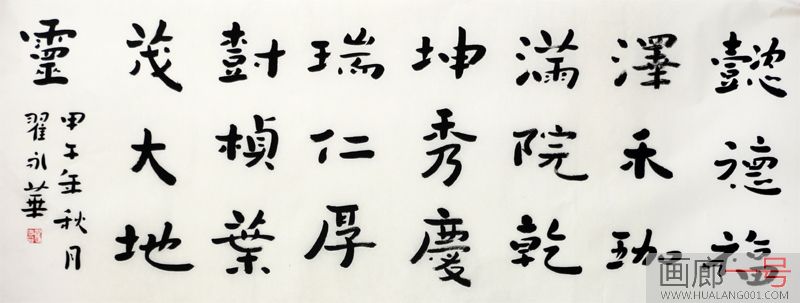 懿德福
澤禾勁
滿院乾
坤秀慶
瑞仁厚
樹楨葉
茂大地
靈
甲午年秋月
翟永華
画廊一号
WWW.HUALANG001.COM